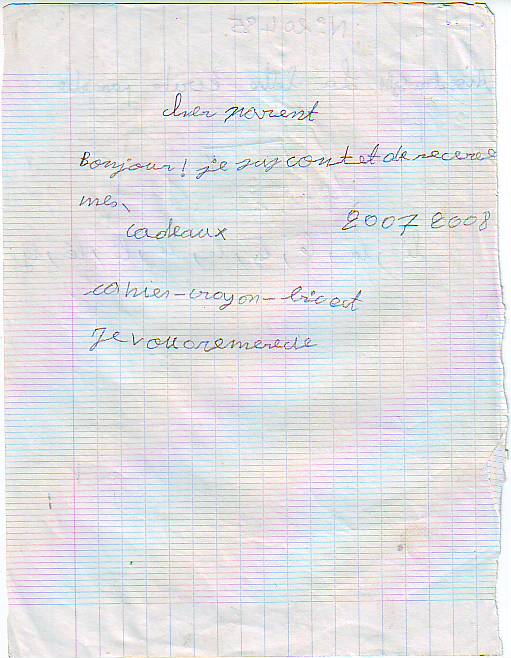 cher parent
Bonjour! je suys contet de receree
mes
cadeaux 2007 2008
cahier-crayon-bic et
Je vouoremerecie